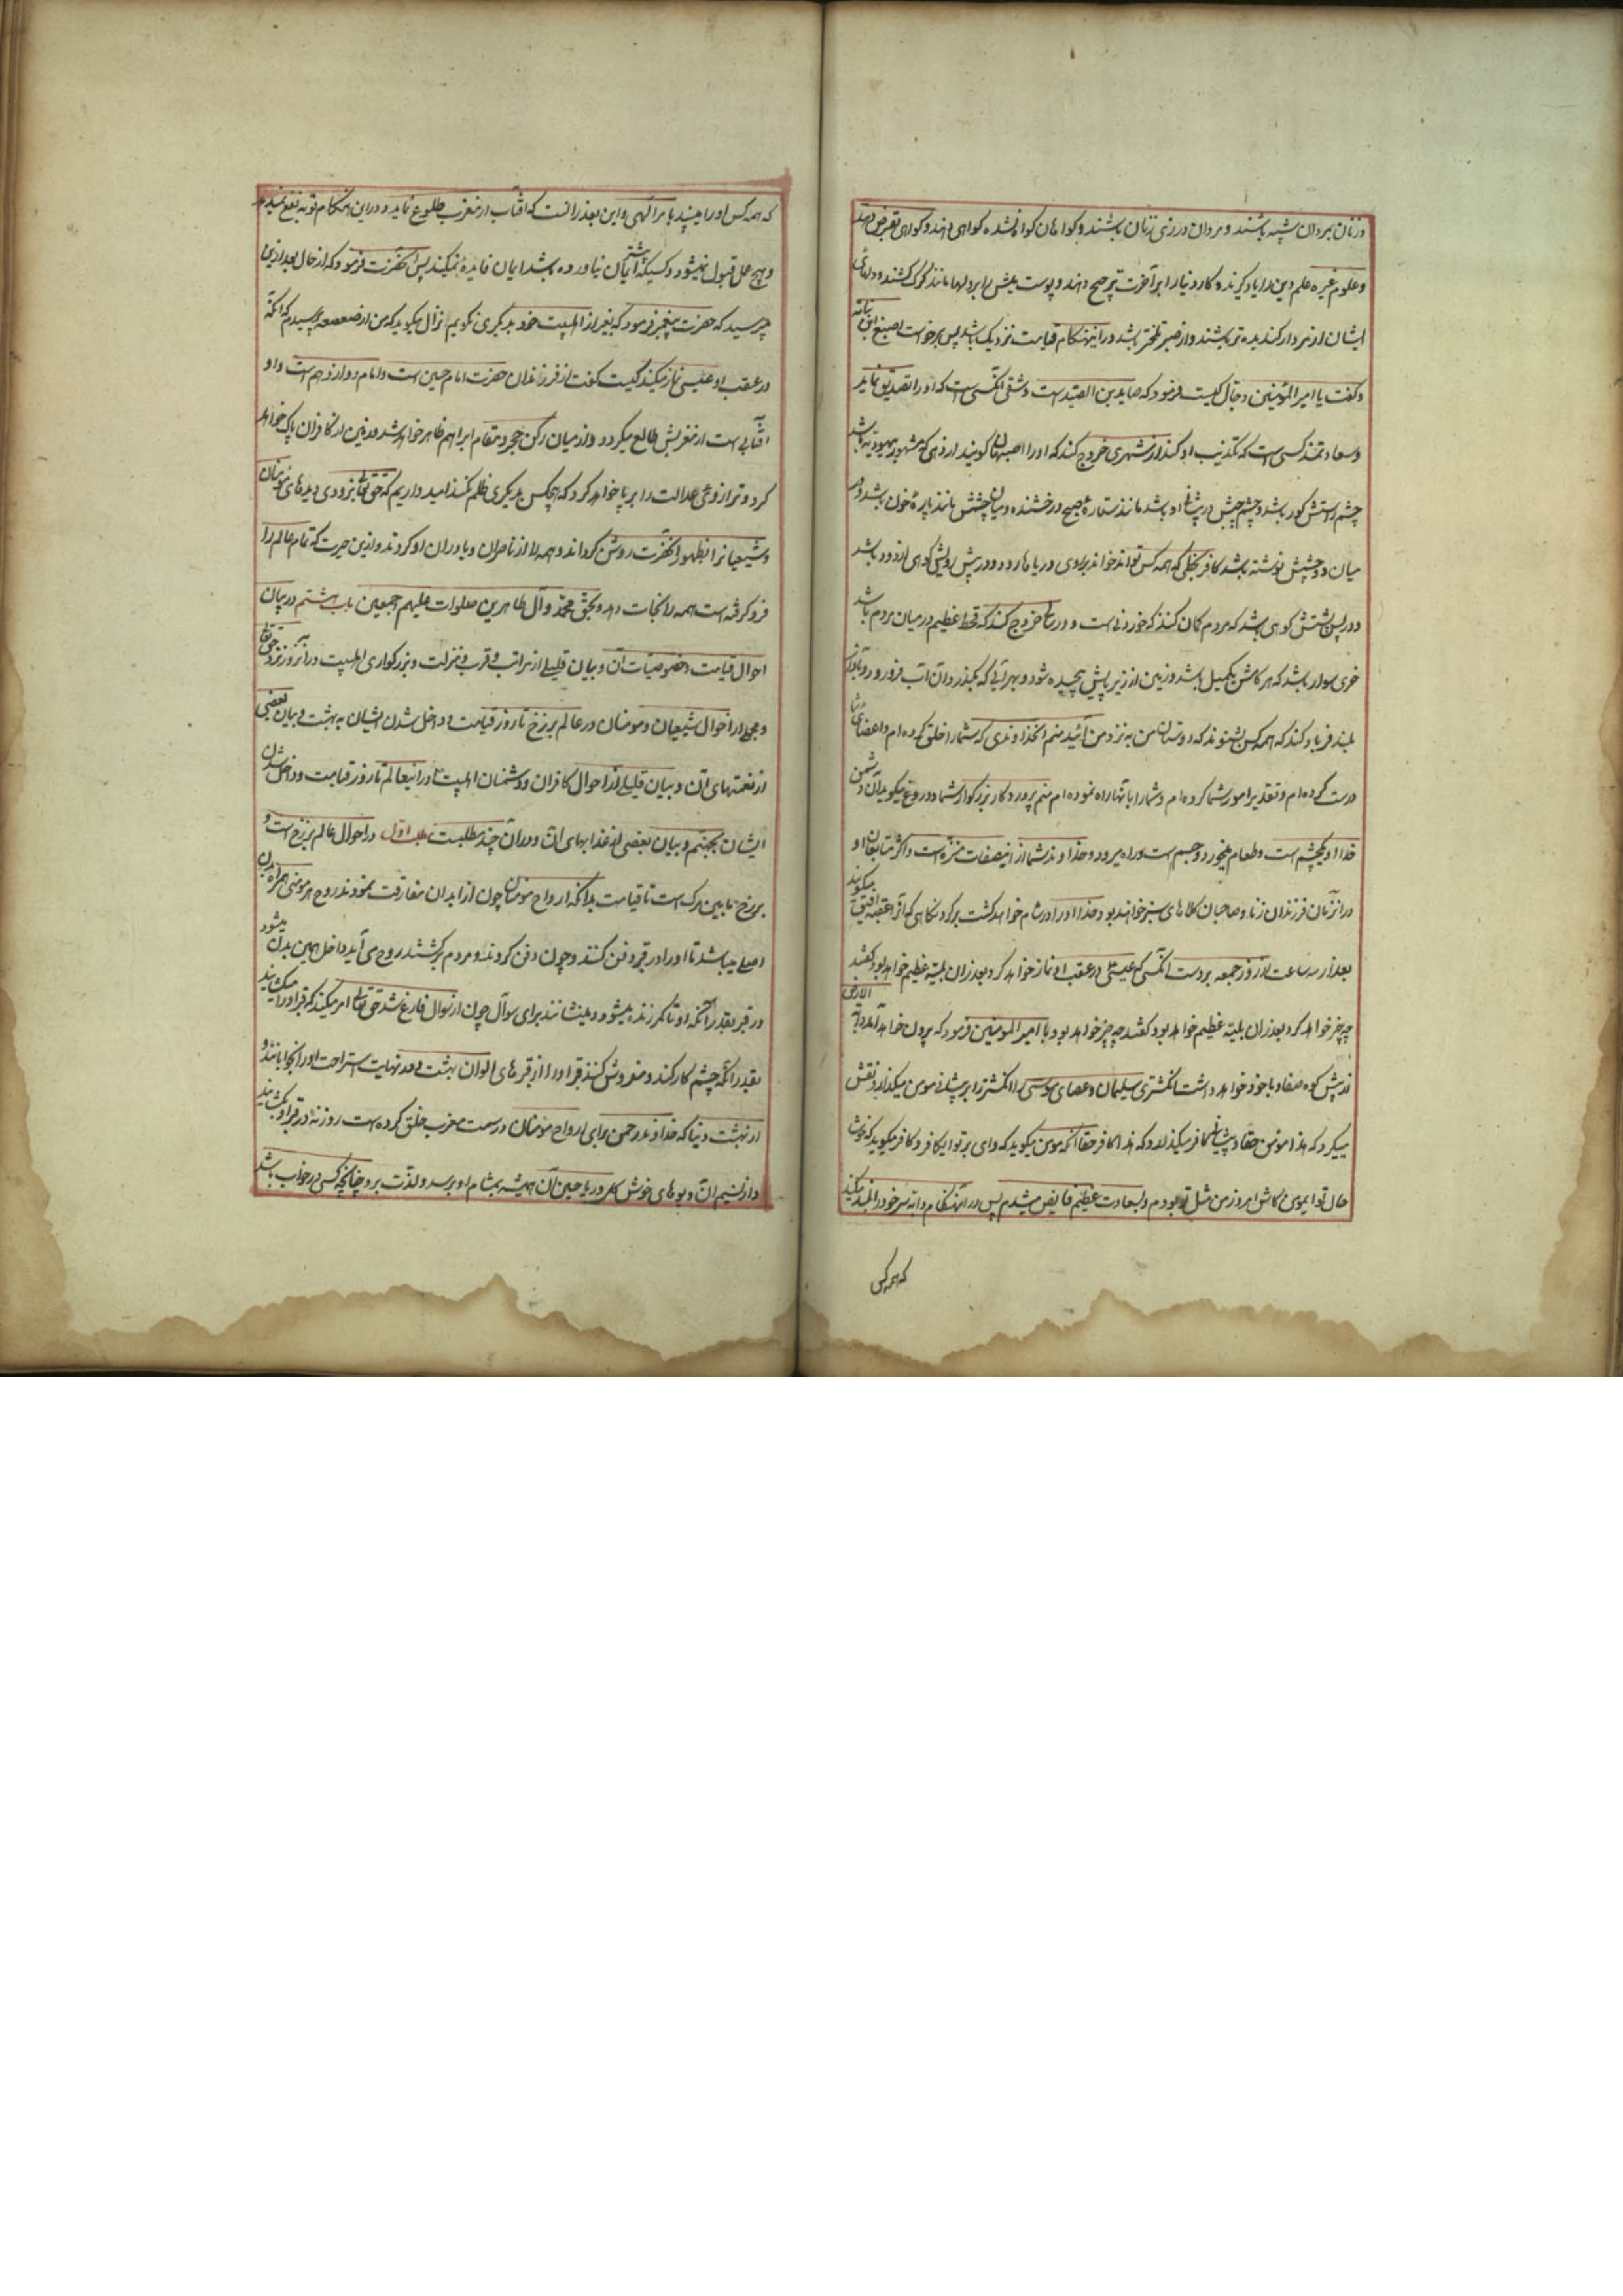 وزنان بمردان شبیه باشند و مردان در زی زنان باشند و کواهان کواه نشده کواهی دهند و کواهی بغرض دهند
و علوم غیره علم دین را یاد کیرند و کار دنیا را بر آخرت ترجیح دهند و پوست میش را بر دلها مانند کرک کشند و دلهای
ایشان از مردار کندیده تر باشند و از صبر تلختر باشد در اینهنکام قیامت نزدیک باشد پس برخواست اصبغ ابن نباته
و کفت یا امیر المؤمنین دجال کیست فرمود که صاید بن الصید است و شقی آنکسی است که او را تصدیق نماید
و سعادتمند کسی است که تکذیب او کند از شهری خروج کند که او را اصبهان کویند از دهی که مشهور بیهودیه باشد
چشم راستش کور باشد و چشم چپش در پیشانی او باشد مانند ستارهٔ صبح درخشنده و میان چشمش مانند پارهٔ خون باشد و در
میان دو چشمش نوشته باشد کافر بخطی که همه کس تواند خواند بر روی دریاها رود و در پیش رویش کوهی از دود باشد
و در پس پشتش کوهی باشد که مردم کمان کنند که خوردنی است و در سالی خروج کند که قحط عظیم در میان مردم باشد
خری سوار باشد که هر کامش یکمیل باشد و زمین از زیر پایش پیچیده شود و بهر آبی که بکذرد آن آب فرو رود و بآواز
بلند فریاد کند که همه کس بشنوند که دوستان من به نزد من آئید منم آنخداوندی که شما را خلق کرده ام و اعضای شما
درست کرده ام و تقدیر امور شما کرده ام و شما را بآنها راه نموده ام منم پروردکار بزرکوار شما و دروغ میکوید آن دشمن
خدا او یکچشم است و طعام میخورد و جسم است و راه میرود و خداوند شما از اینصفات منزه است و اکثر متابعان او
در انزمان فرزندان زنا و صاحبان کلاه های سبز خواهند بود خدا او را در شام خواهد کشت بر کردنکاهی که آنرا عقبه افیق میکویند
بعد از سه ساعت از روز جمعه بر دست آنکسی که عیسی در عقب او نماز خواهد کرد و بعد از ان بلیه عظیم خواهد بود کفتند
چه چیز خواهد کرد و بعد از ان بلیه عظیم خواهد بود کفتند چه چیز خواهد بود یا امیر المومنین فرمود که بیرون خواهد آمد دابة الارض
نزد پیش کوه صفا و با خود خواهد داشت انکشتری سلیمان و عصای موسی را انکشتر را بر پیشانی مومن میکذارد و نقش
میکیرد که هذا مومن حقا و بر پیشانی کافر میکذارد که هذا کافر حقا آنکه مومن میکوید که وای بر تو ایکافر و کافر میکوید که خوشا
حال تو ایمومن کاش امروز من مثل تو بودم و بسعادت عظیم فایض میشدم پس در آنهنکام دابه سر خود را بلند میکند
که همه کس
که همه کس او را میبیند بامر الهی و این بعد از انست که آفتاب از مغرب طلوع نماید و در این هنکام توبه نفع نمیدهد
و هیچ عمل قبول نمیشود و کسیکه پیشتر ایمان نیاورده باشد ایمان فایده نمیکند پس آنحضرت فرمود که از حال بعد ازین
مپرسید که حضرت پیغمبر فرمود که بغیر از اهلبیت خود بدیکری نکویم انزال میکوید که من از صعصعه پرسیدم که آنکه
در عقب او عیسی نماز میکند کیست کفت از فرزندان حضرت امام حسین است و امام دوازدهم است و او
آفتابی است از مغربش طالع میکردد و از میان رکن حجر و مقام ابراهیم ظاهر خواهد شد و زمین از کافران پاک خواهد
کرد و ترازوی عدالت را بر پا خواهد کرد که هیچکس بدیکری ظلم نکند امید داریم که حق تعالی بزودی دیدهای مومنان
و شیعیانرا بظهور آنحضرت روشن کرداند و همه ما را از ناصران و یاوران او کرداند و ازین حیرت که تمام عالم را
فرو کرفته است همه را نجات دهد و بحق محمد و آل طاهرین صلوات علیهم اجمعین باب هشتم در بیان
احوال قیامت و خصوصیات آن و بیان قلیلی از مراتب و قرب و منزلت و بزرکواری اهلبیت در آنروز نزد حق تعالی
و مجملی از احوال شیعیان و مومنان در عالم برزخ تا روز قیامت و داخل شدن ایشان به بهشت و بیان بعضی
از نعمتهای آن و بیان قلیلی از احوال کافران و دشمنان اهلبیت در اینعالم تا روز قیامت و داخل شدن
ایشان بجهنم و بیان بعضی از عذابهای آن و در ان چند مطلبست مطلب اول در احوال عالم برزخ است و
برزخ ما بین مرک است تا قیامت بدانکه ارواح مومنان چون از ابدان مفارقت نمودند روح هر مومنی همراه بدن
اصلی میباشد تا او را در قبر دفن کنند و چون دفن کردند و مردم برکشتند روح می آید داخل همین بدن میشود
در قبر بقدر آنکه او تا کمر زنده میشود و مینشانند برای سوال چون از سوال فارغ شد حق تعالی امر میکند که قبر او را میکشایند
بقدر آنکه چشم کار کند و مفروش کنند قبر او را از فرشهای الوان بهشت و در نهایت استراحت او را آنجا بمانند و
از بهشت دنیا که خداوند رحمن برای ارواح مومنان در سمت مغرب خلق کرده است روزنه در قبر او بکشایند
و از نسیم آن و بوهای خوش کل و ریاحین آن همیشه بمشام او برسد و لذت برد چنانچه کسی در خواب باشد